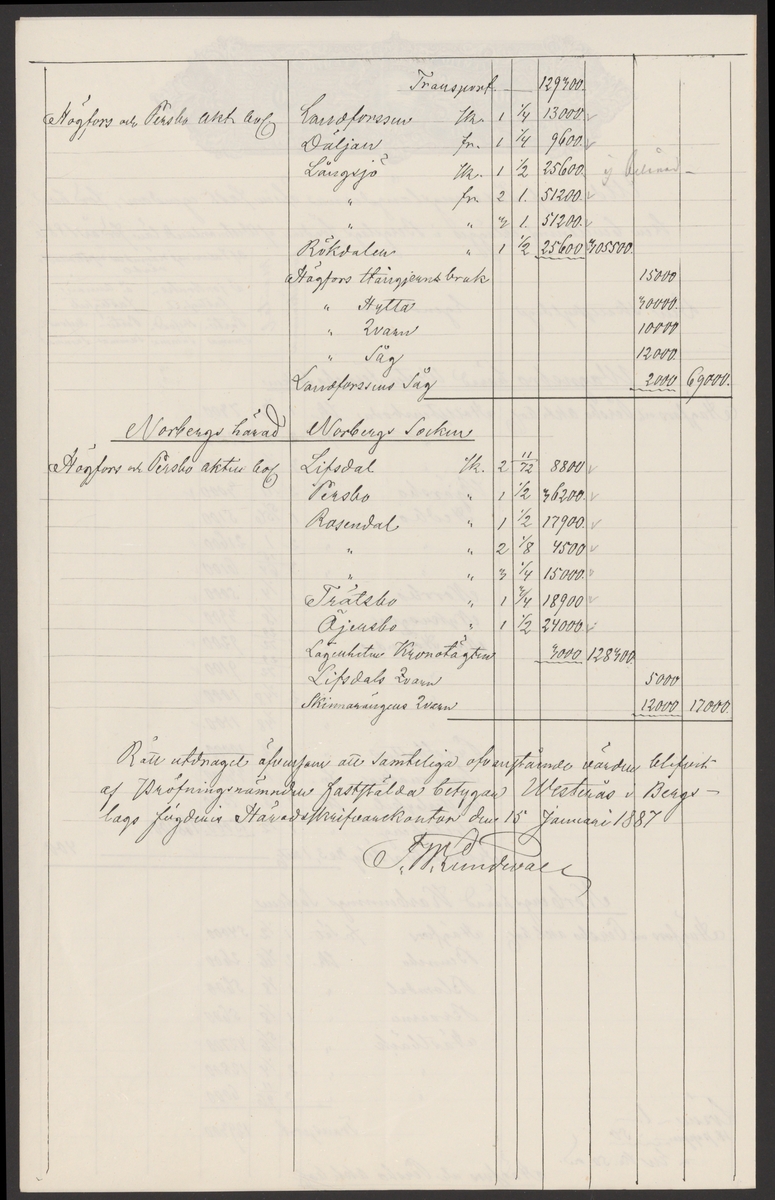 Transport. 129300.
Högfors och Persbo akt. bol Landforssen sk. 1 1/4 13000.
Däljan fr. 1 1/4 9600.
Långsjö sk. 1 1/2 25600.
" fr. 2 1. 51200.
" " 3 1. 51200.
Rökdalen " 1 1/2 25600 305500.
Högfors Stångjernsbruk 15000
" Hytta 30000.
" Qvarn 10000
" Såg 12000.
Landforssens Såg 2000 69000.
Norbergs härad Norbergs Socken
Högfors och Persbo aktie bol Lifsdal sk. 2 11/72 8800
Persbo " 1 1/2 36200.
Rosendal " 1 1/2 17900.
" " 2 1/8 4500
" " 3 1/4 15000.
Trätsbo " 1 3/4 18900
Öjersbo " 1 1/2 24000.
Lägenheten Kronotägten 3000 128300.
Lifsdals Qvarn 5000
Skinnarängens Qvarn 12000 17000.
Rätt utdraget äfvensom att samteliga ofvanstående värden blifvit
af Pröfningsnämnden fastställda betygar Westerås i Bergs-
lags fögderis Häradsskrifvarekontor den 15 Januari 1887